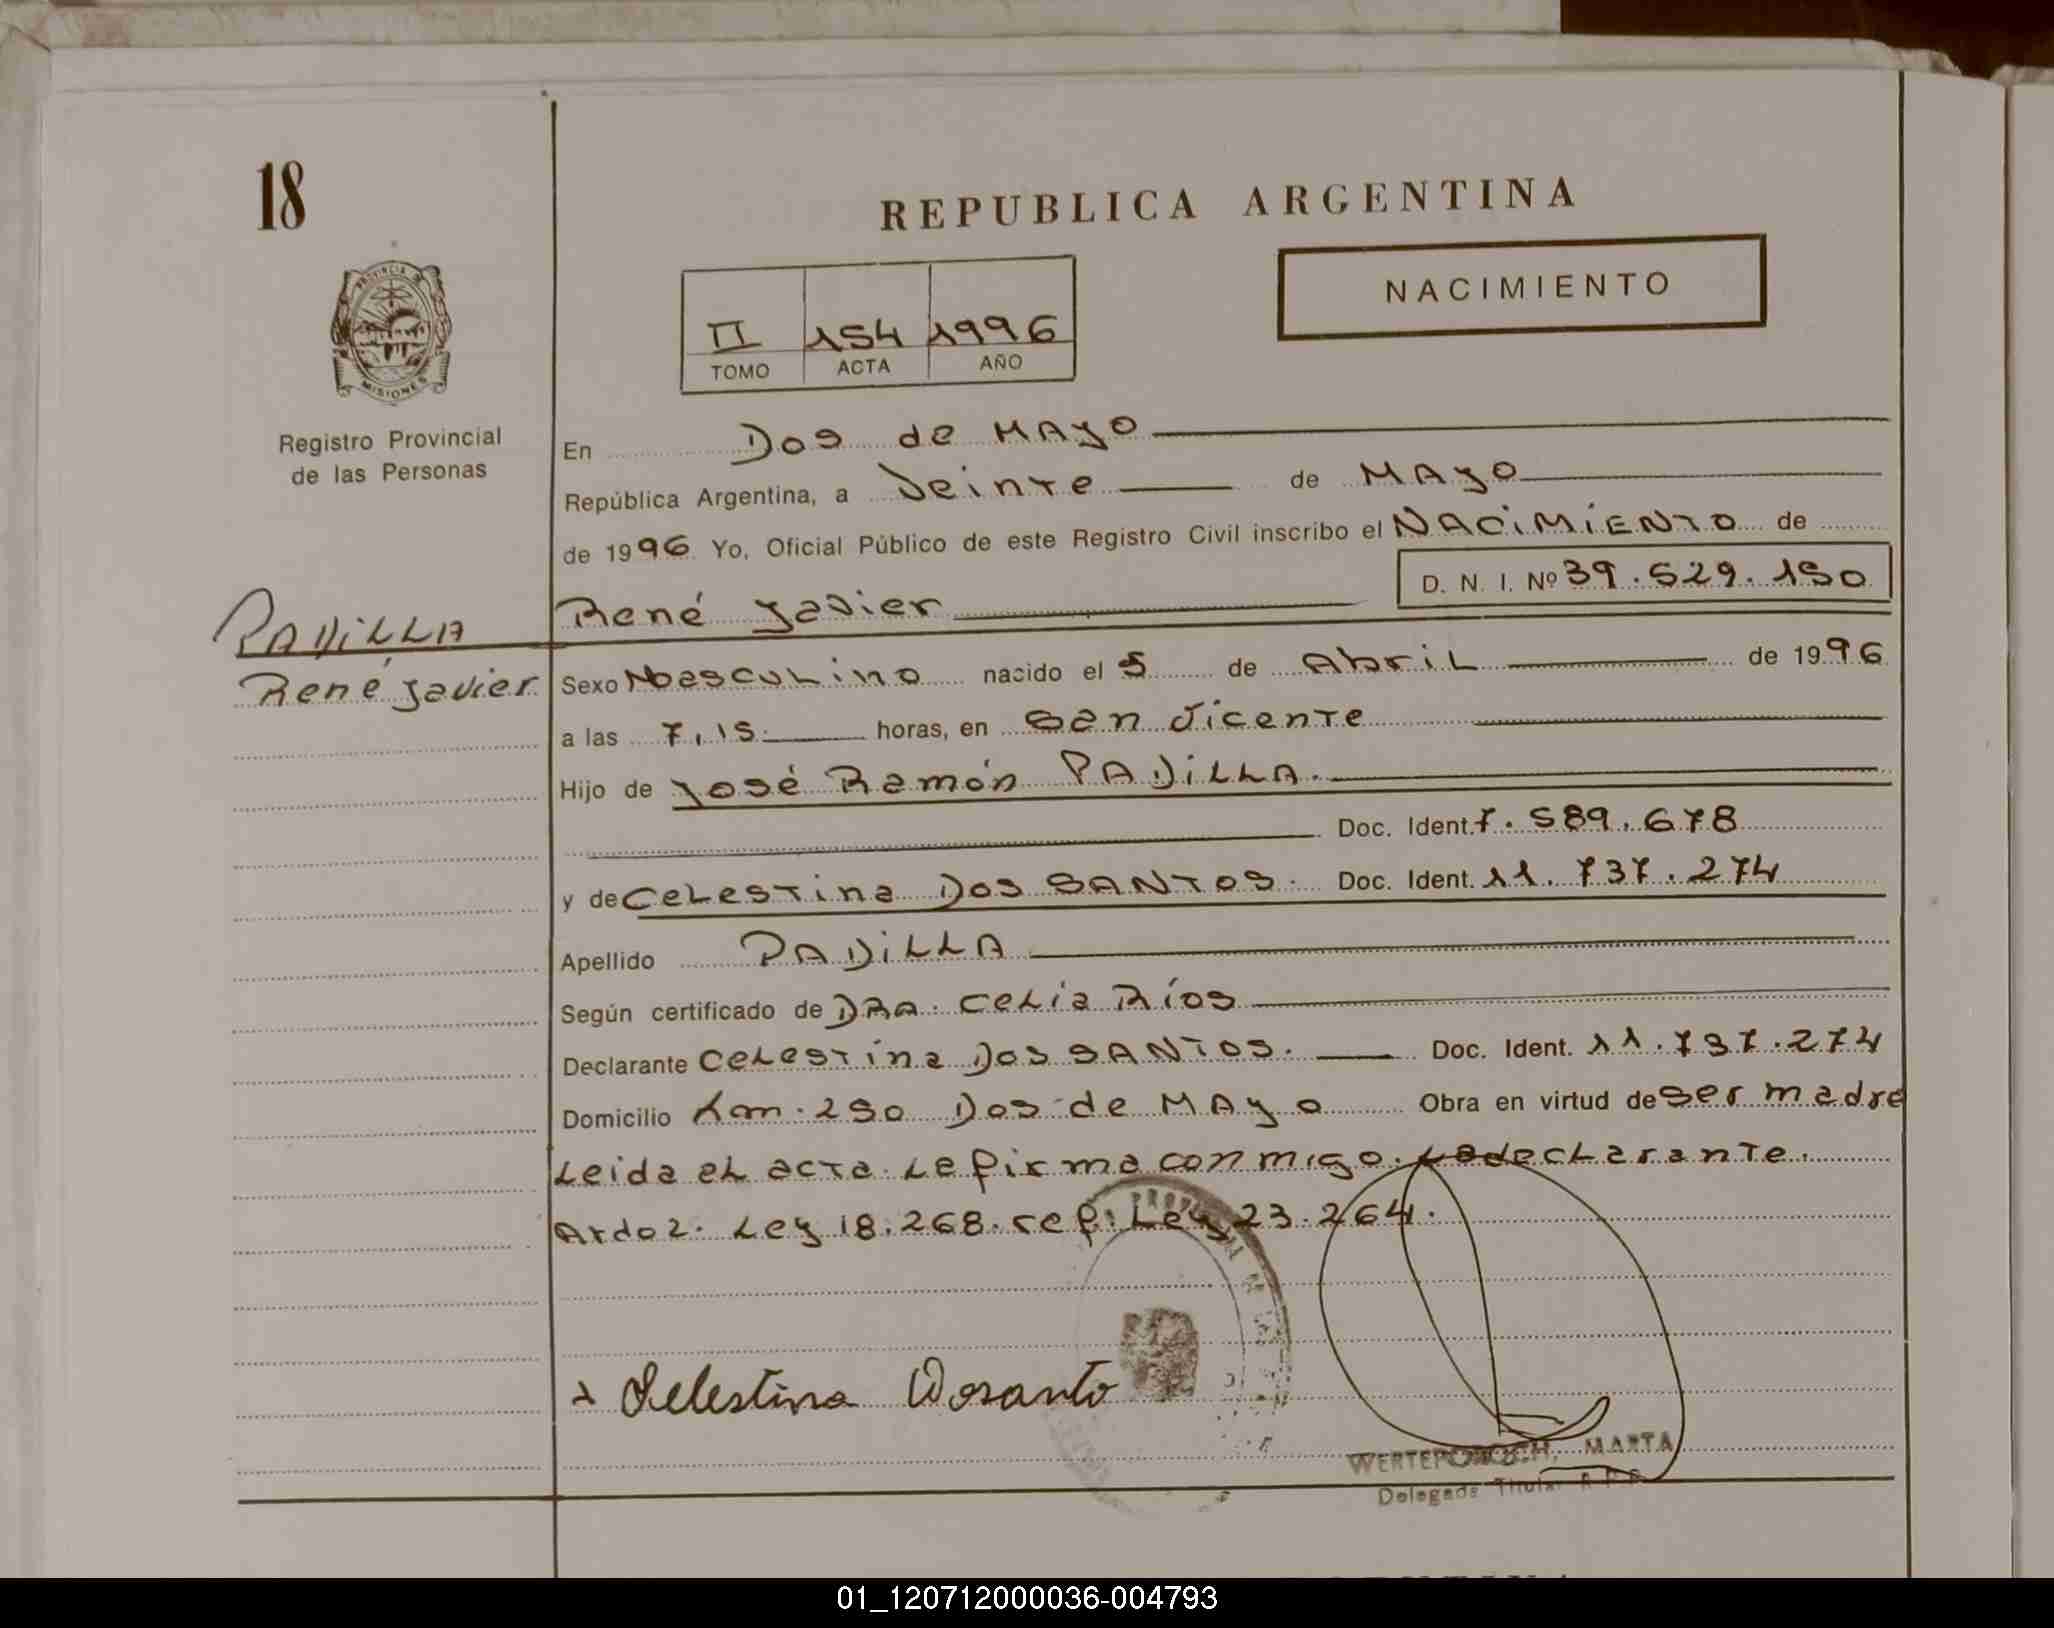 18
REPUBLICA ARGENTINA
NACIMIENTO
II 154 1996
TOMO ACTA AÑO
PROVINCIA DE
MISIONES
Registro Provincial
de las Personas
En Dos de MAyo
República Argentina, a Veinte de MAyo
de 1996 Yo, Oficial Público de este Registro Civil inscribo el NACIMIENTO de
D. N. I. Nº 39.529.150
René Javier
PADILLA
René Javier
Sexo Masculino nacido el 5 de Abril de 1996
a las 7,15 horas, en San Vicente
Hijo de José Ramón PADILLA.
Doc. Ident. 7.589.678
y de Celestina Dos SANTOS. Doc. Ident. 11.737.274
Apellido PADILLA
Según certificado de DRA. Celia Ríos
Declarante Celestina Dos SANTOS. Doc. Ident. 11.737.274
Domicilio Km. 290 Dos de MAyo Obra en virtud de ser madre
Leida el acta. La firma conmigo. La declarante.
Ley 18.268. ref. Ley 23.264.
Selestina Dosanto
MARTA
Delegada Titular R P P
01_120712000036-004793